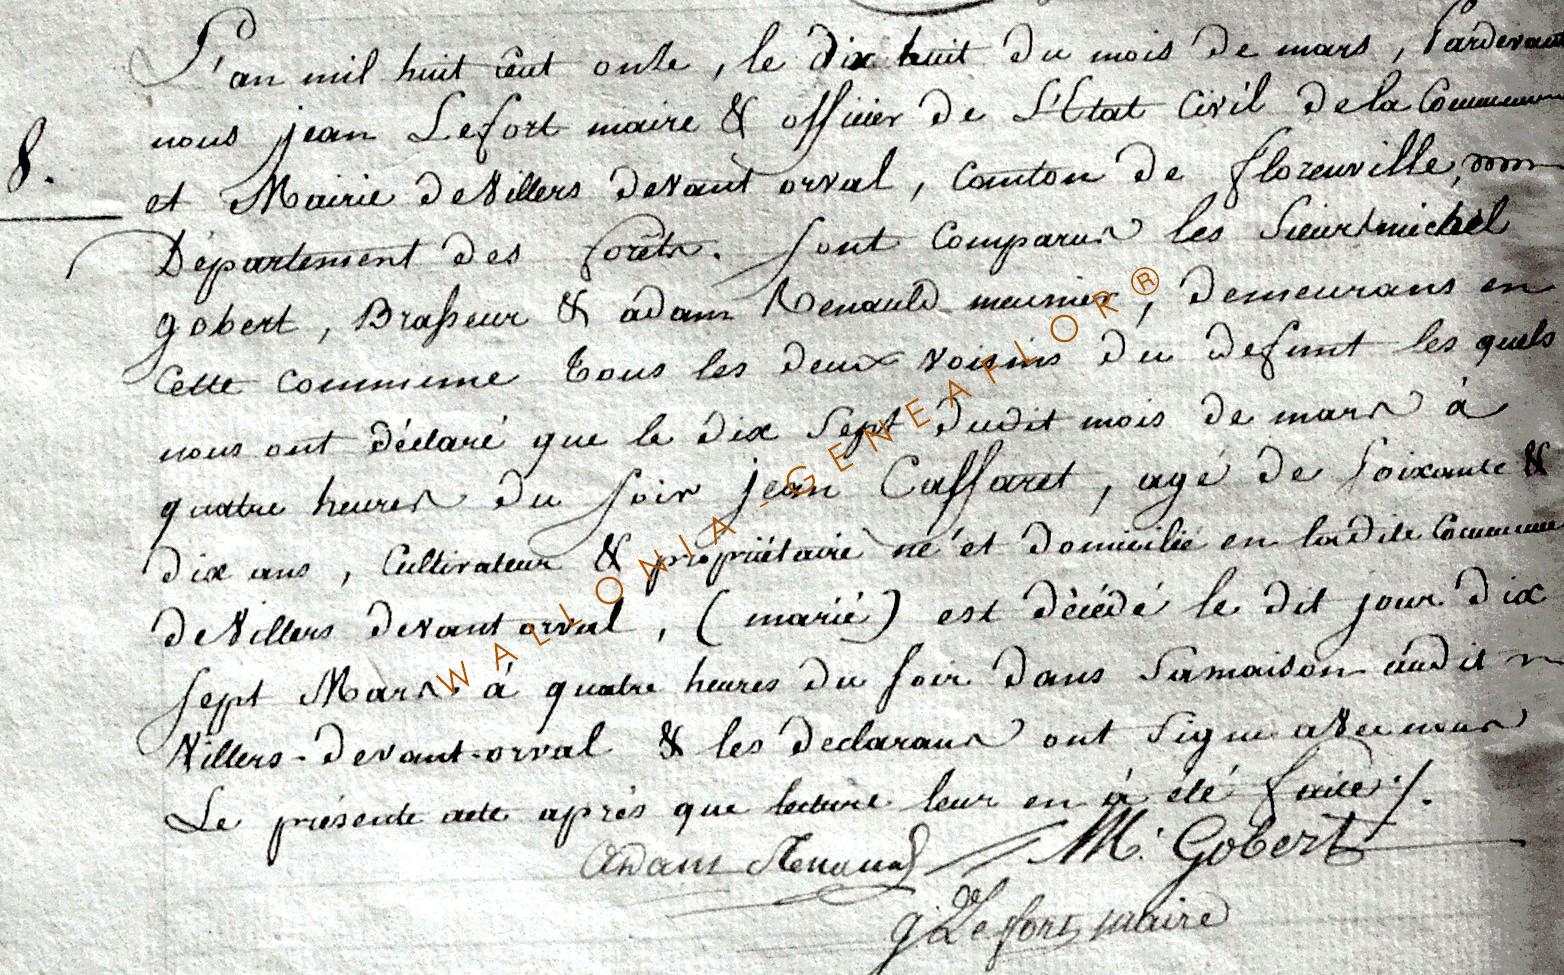 L'an mil huit cent onze, le dix huit du mois de mars, Pardevant
nous jean Lefort maire & officier de L'Etat Civil de la Commune
8.
et Mairie de Villers devant orval, Canton de florenville,
Département des forêts. Sont Comparus les Sieurs michel
gobert, Brasseur & adam Renauld meunier, demeurans en
Cette Commune tous les deux voisins du defunt les quels
nous ont déclaré que le dix Sept dudit mois de mars à
quatre heures du soir jean Caffaret, agé de Soixante &
dix ans, Cultivateur & propriétaire né et domicilié en ladite Commune
de Villers devant orval, (marié) est décédé le dit jour dix
sept Mars à quatre heures du soir dans Samaison audit
Villers-devant-orval & les declarans ont Signé avec nous
Le présente acte aprés que lecture leur en à été faite ./.
Adam Renauld M. Gobert
g. Lefort maire
WALLONIA-GENEAFLOR®